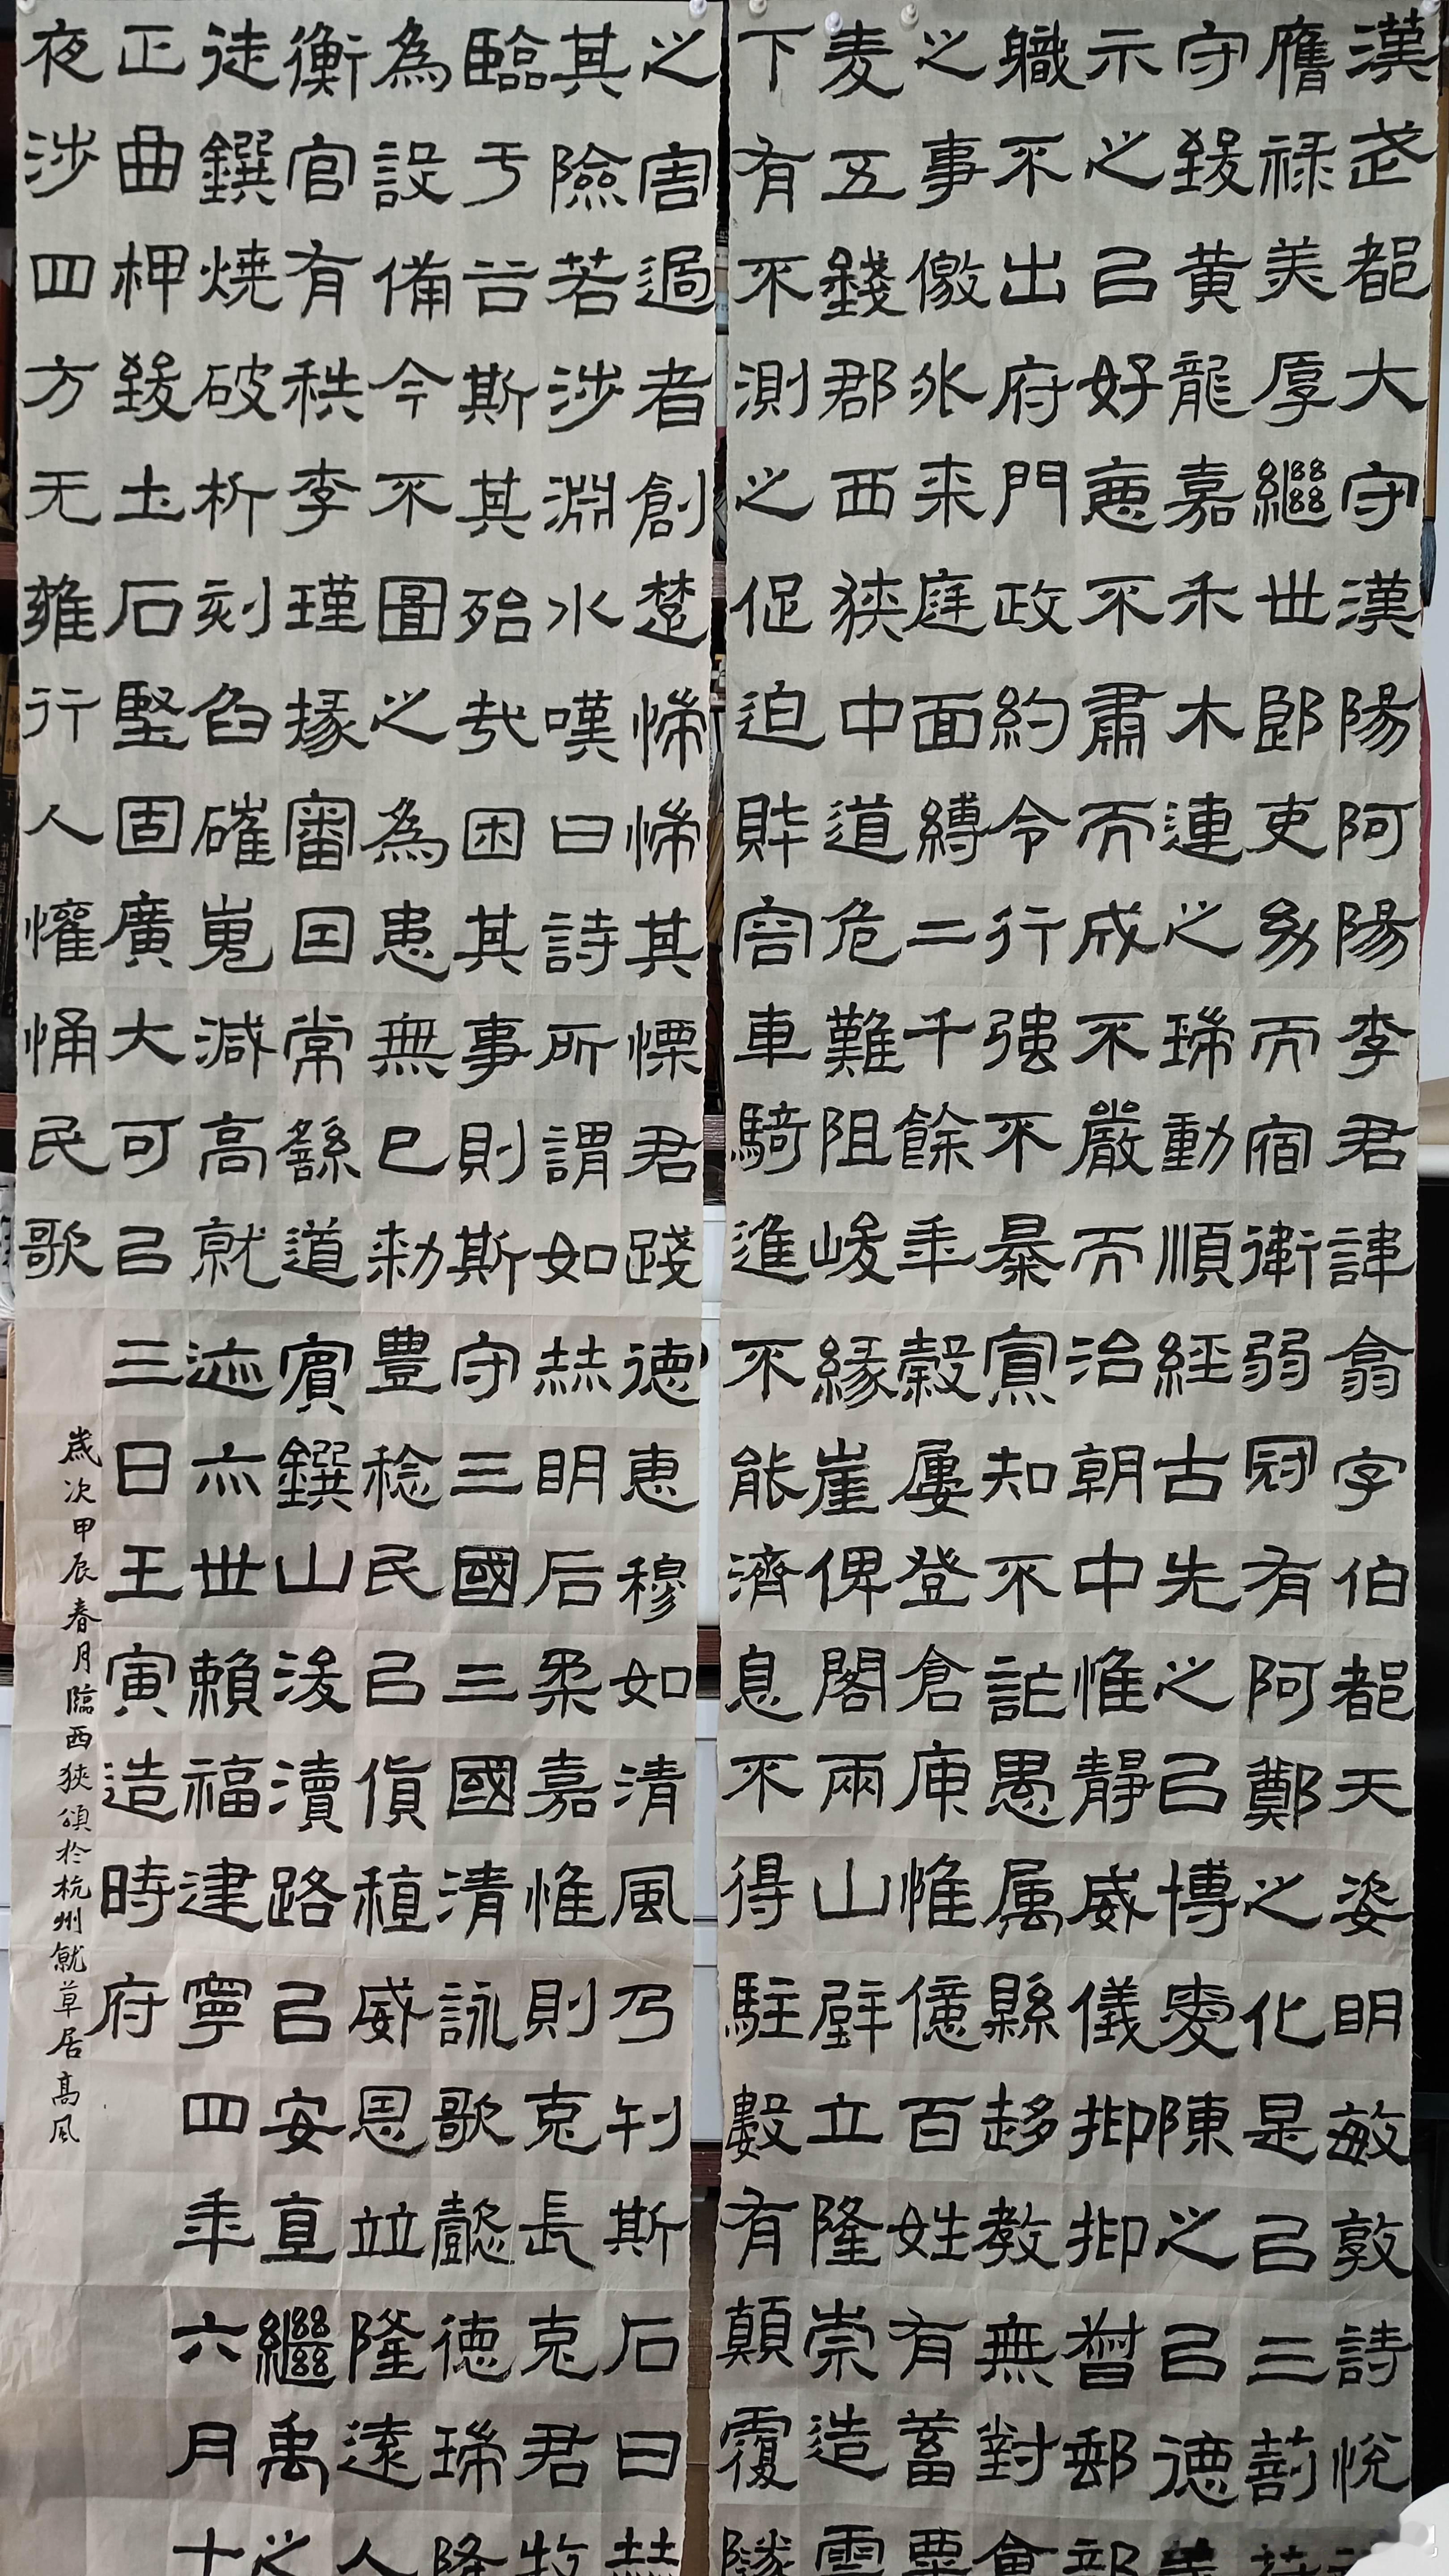 漢武都大守漢陽阿陽李君諱翕字伯都天姿明敏敦詩悅
膺祿美厚繼世郎吏幼而宿衛弱冠有阿鄭之化是㠯三剖符
守致黃龍嘉禾木連之瑞動順經古先之㠯博愛陳之㠯德義
示之㠯好惡不肅而成不嚴而治朝中惟靜威儀抑抑督郵部
職不出府門政約令行強不暴寡知不詐愚屬縣趍教無對會
之事徼外來庭面縛二千餘年穀屢登倉庾惟億百姓有蓄粟
麦五錢郡西狹中道危難阻峻緣崖俾閣兩山壁立隆崇造雲
下有不測之促迫財容車騎進不能濟息不得駐數有顛覆隧
之害過者創楚惴惴其慄君踐德惠穆如清風乃刊斯石曰赫
其險若涉淵水嘆曰詩所謂如赫明后柔嘉惟則克長克君牧
臨于谷斯其殆哉困其事則斯守三國三國清詠歌懿德瑞隆
為設備今不圖之為患無已敕豐稔民㠯貨稙威恩並隆遠人
衡官有秩李瑾掾審囯常繇道賓鐉山浚瀆路㠯安直繼禹之
徒鐉燒破析刻臽確嵬減高就迹亦世賴福建寧四年六月十
正曲柙致土石堅固廣大可㠯三日壬寅造時府
夜涉四方无雍行人懽悀民歌
歲次甲辰春月臨西狹頌於杭州就草居高風